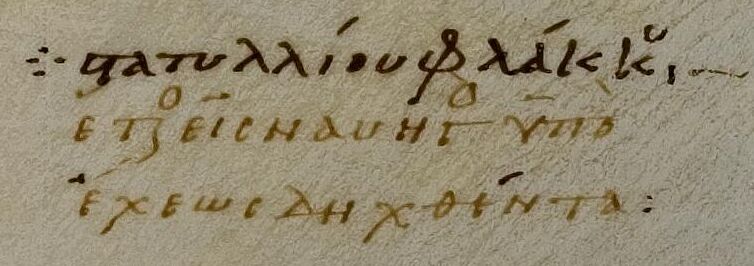 ⁘ ϛατυλλίου φλάκκȣ
ετρ^ο εἰς ναυηγ^ο ὑπὸ
ἔχεως δηχθέντα :